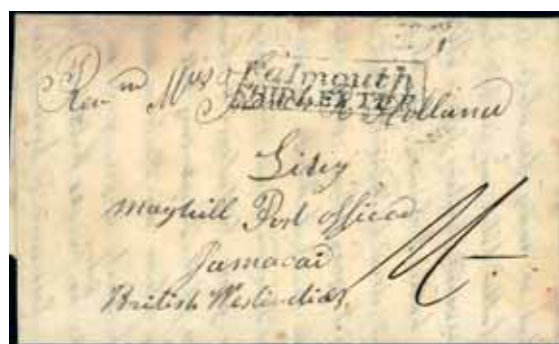 Falmouth
SHIP LETTER
Revnd Mrs Holland
Lisiy
Mayhill Post officce
Jamacai
British Westindias